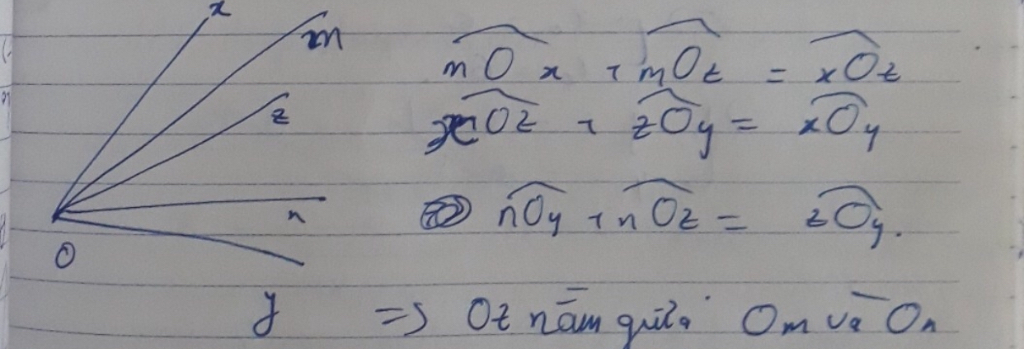 x
m
z
n
O
y
mOx + mOz = xOz
xOz + zOy = xOy
nOy + nOz = zOy.
=> Oz nằm giữa Om và On